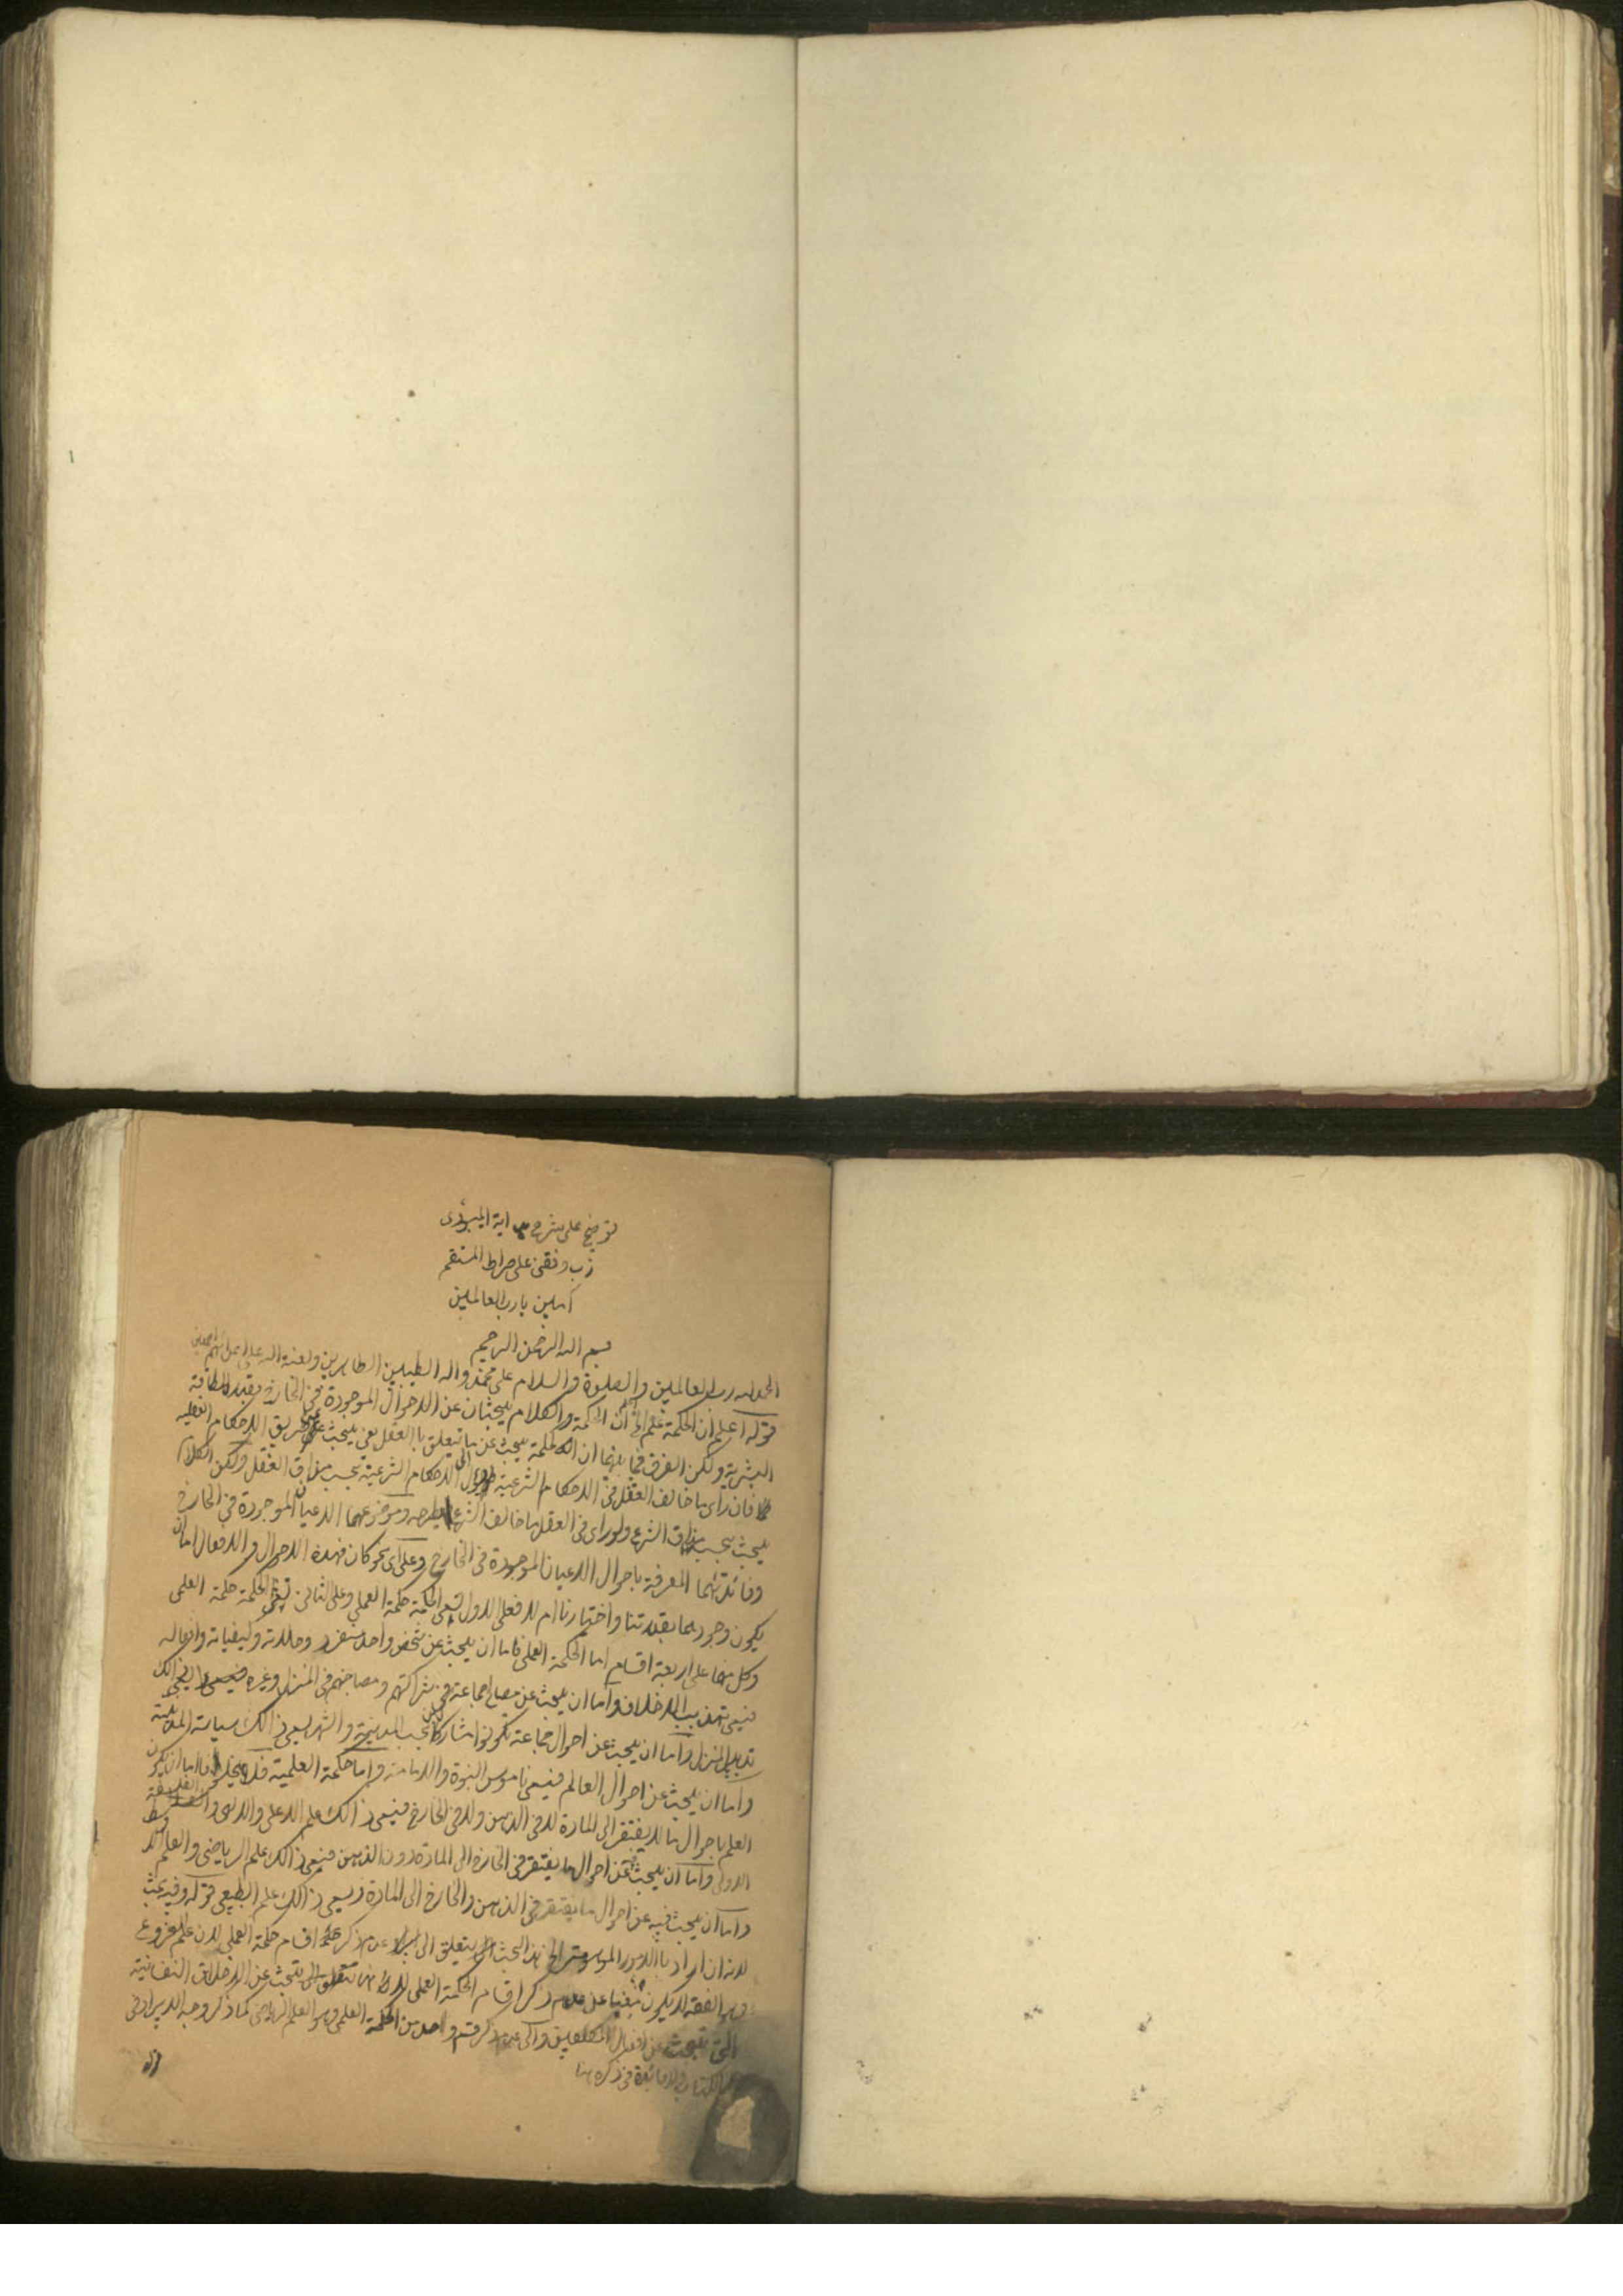 توضیح علی شرح هدایة المیبدی
رب وفقنی علی صراط المستقیم
آمین یا رب العالمین
بسم الله الرحمن الرحیم
الحمد لله رب العالمین والصلوة والسلام علی محمد واله الطیبین الطاهرین ولعنة الله علی اعدائهم اجمعین
قوله اعلم ان الحکمة علم الخ ان الحکمة والکلام یبحثان عن الاحوال الموجودة فی الخارج بقدر الطاقة
البشریة ولکن الفرق فیما بینهما ان الحکمة یبحث عن ما یتعلق بالعقل یعنی یبحث عن طریق الاحکام العقلیه
فان رای ما خالف العقل فی الاحکام الشرعیة الاحکام الشرعیة بحسب مذاق العقل ولکن الکلام
یبحث بحسب مذاق الشرع ولو رای فی العقل ما خالف الشرع یطرحه وموضوعهما الاعیان الموجودة فی الخارج
وفائدتهما المعرفة باحوال الاعیان الموجودة فی الخارج وعلی ای نحو کان فهذه الاحوال والافعال اما ان
یکون وجودهما بقدرتنا واختیارنا ام لا فعلی الاول فسمی الحکمة حکمة العملی وعلی الثانی تسمی الحکمة حکمة العلمی
وکل منهما علی اربعة اقسام اما الحکمة العملی فاما ان یبحث عن شخص واحد منفرد وکیفیاته وافعاله
فیسمی تهذیب الاخلاق واما ان یبحث عن مصالح جماعة فی شراکتهم ومصاحبتهم فی المنزل وغیره ذالک
تدبیر المنزل واما ان یبحث عن احوال جماعة تکونوا مشارکا بحسب المدینة والشهر یسمی ذالک سیاسة المدینة
واما ان یبحث عن احوال العالم فیسمی ناموس النبوة والامامة واما حکمة العلمیة فلا یخلو اما ان یکون
العلم باحوال ما لا یفتقر الی المادة لا فی الذهن ولا فی الخارج فیسمی ذالک علم الاعلی والالهی والفلسفة
الاولی واما ان یبحث عن احوال ما یفتقر فی الخارج الی المادة دون الذهن فیسمی ذالک علم الریاضی والعلم الاوسط
واما ان یبحث فیه عن احوال ما یفتقر فی الذهن والخارج الی المادة ویسمی ذالک علم الطبیعی قوله وفیه بحث
لانه ان اراد بالامور الموسومة الخ هذا البحث یتعلق الی عدم ذکر اقسام حکمة العملی لان علم الفروع
وهو الفقه لا یکون مغنیا عن عدم ذکر اقسام الحکمة العملی تبحث عن الاخلاق النفسانیة
التی تبحث عن افعال المکلفین والی عدم ذکر قسم واحد من الحکمة العلمی وهو العلم الریاضی کما ذکر وجه الایراد فی
الکتاب ولا فائدة فی ذکره هنا